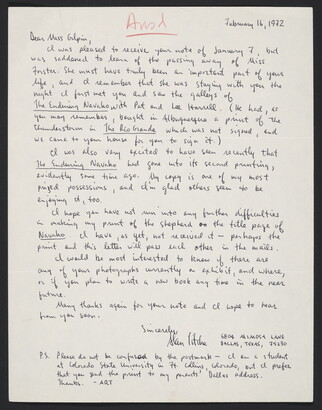 Ansd
February 16, 1972
Dear Miss Gilpin,
I was pleased to receive your note of January 7, but
was saddened to learn of the passing away of Miss
Forster. She must have truly been an important part of your
life, and I remember that she was staying with you the
night I first met you and saw the galleys of
The Enduring Navaho with Pat and Lee Harrell. (He had, as
you may remember, bought in Albuquerque a print of the
thunderstorm in The Rio Grande which was not signed, and
we came to your house for you to sign it.)
I was also very excited to have seen recently that
The Enduring Navaho had gone into its second printing,
evidently some time ago. My copy is one of my most
prized possessions, and I'm glad others seem to be
enjoying it, too.
I hope you have not run into any further difficulties
in making my print of the shepherd on the title page of
Navaho. I have, as yet, not received it – perhaps the
print and this letter will pass each other in the mails.
I would be most interested to know if there are
any of your photographs currently on exhibit, and where,
or if you plan to write a new book any time in the near
future.
Many thanks again for your note and I hope to hear
from you soon.
Sincerely,
6806 Mimosa Lane
Dallas, Texas, 75230
P.S. Please do not be confused by the postmark – I am a student
at Colorado State University in Ft. Collins, Colorado, but I prefer
that you send the print to my parents' Dallas address.
Thanks. –